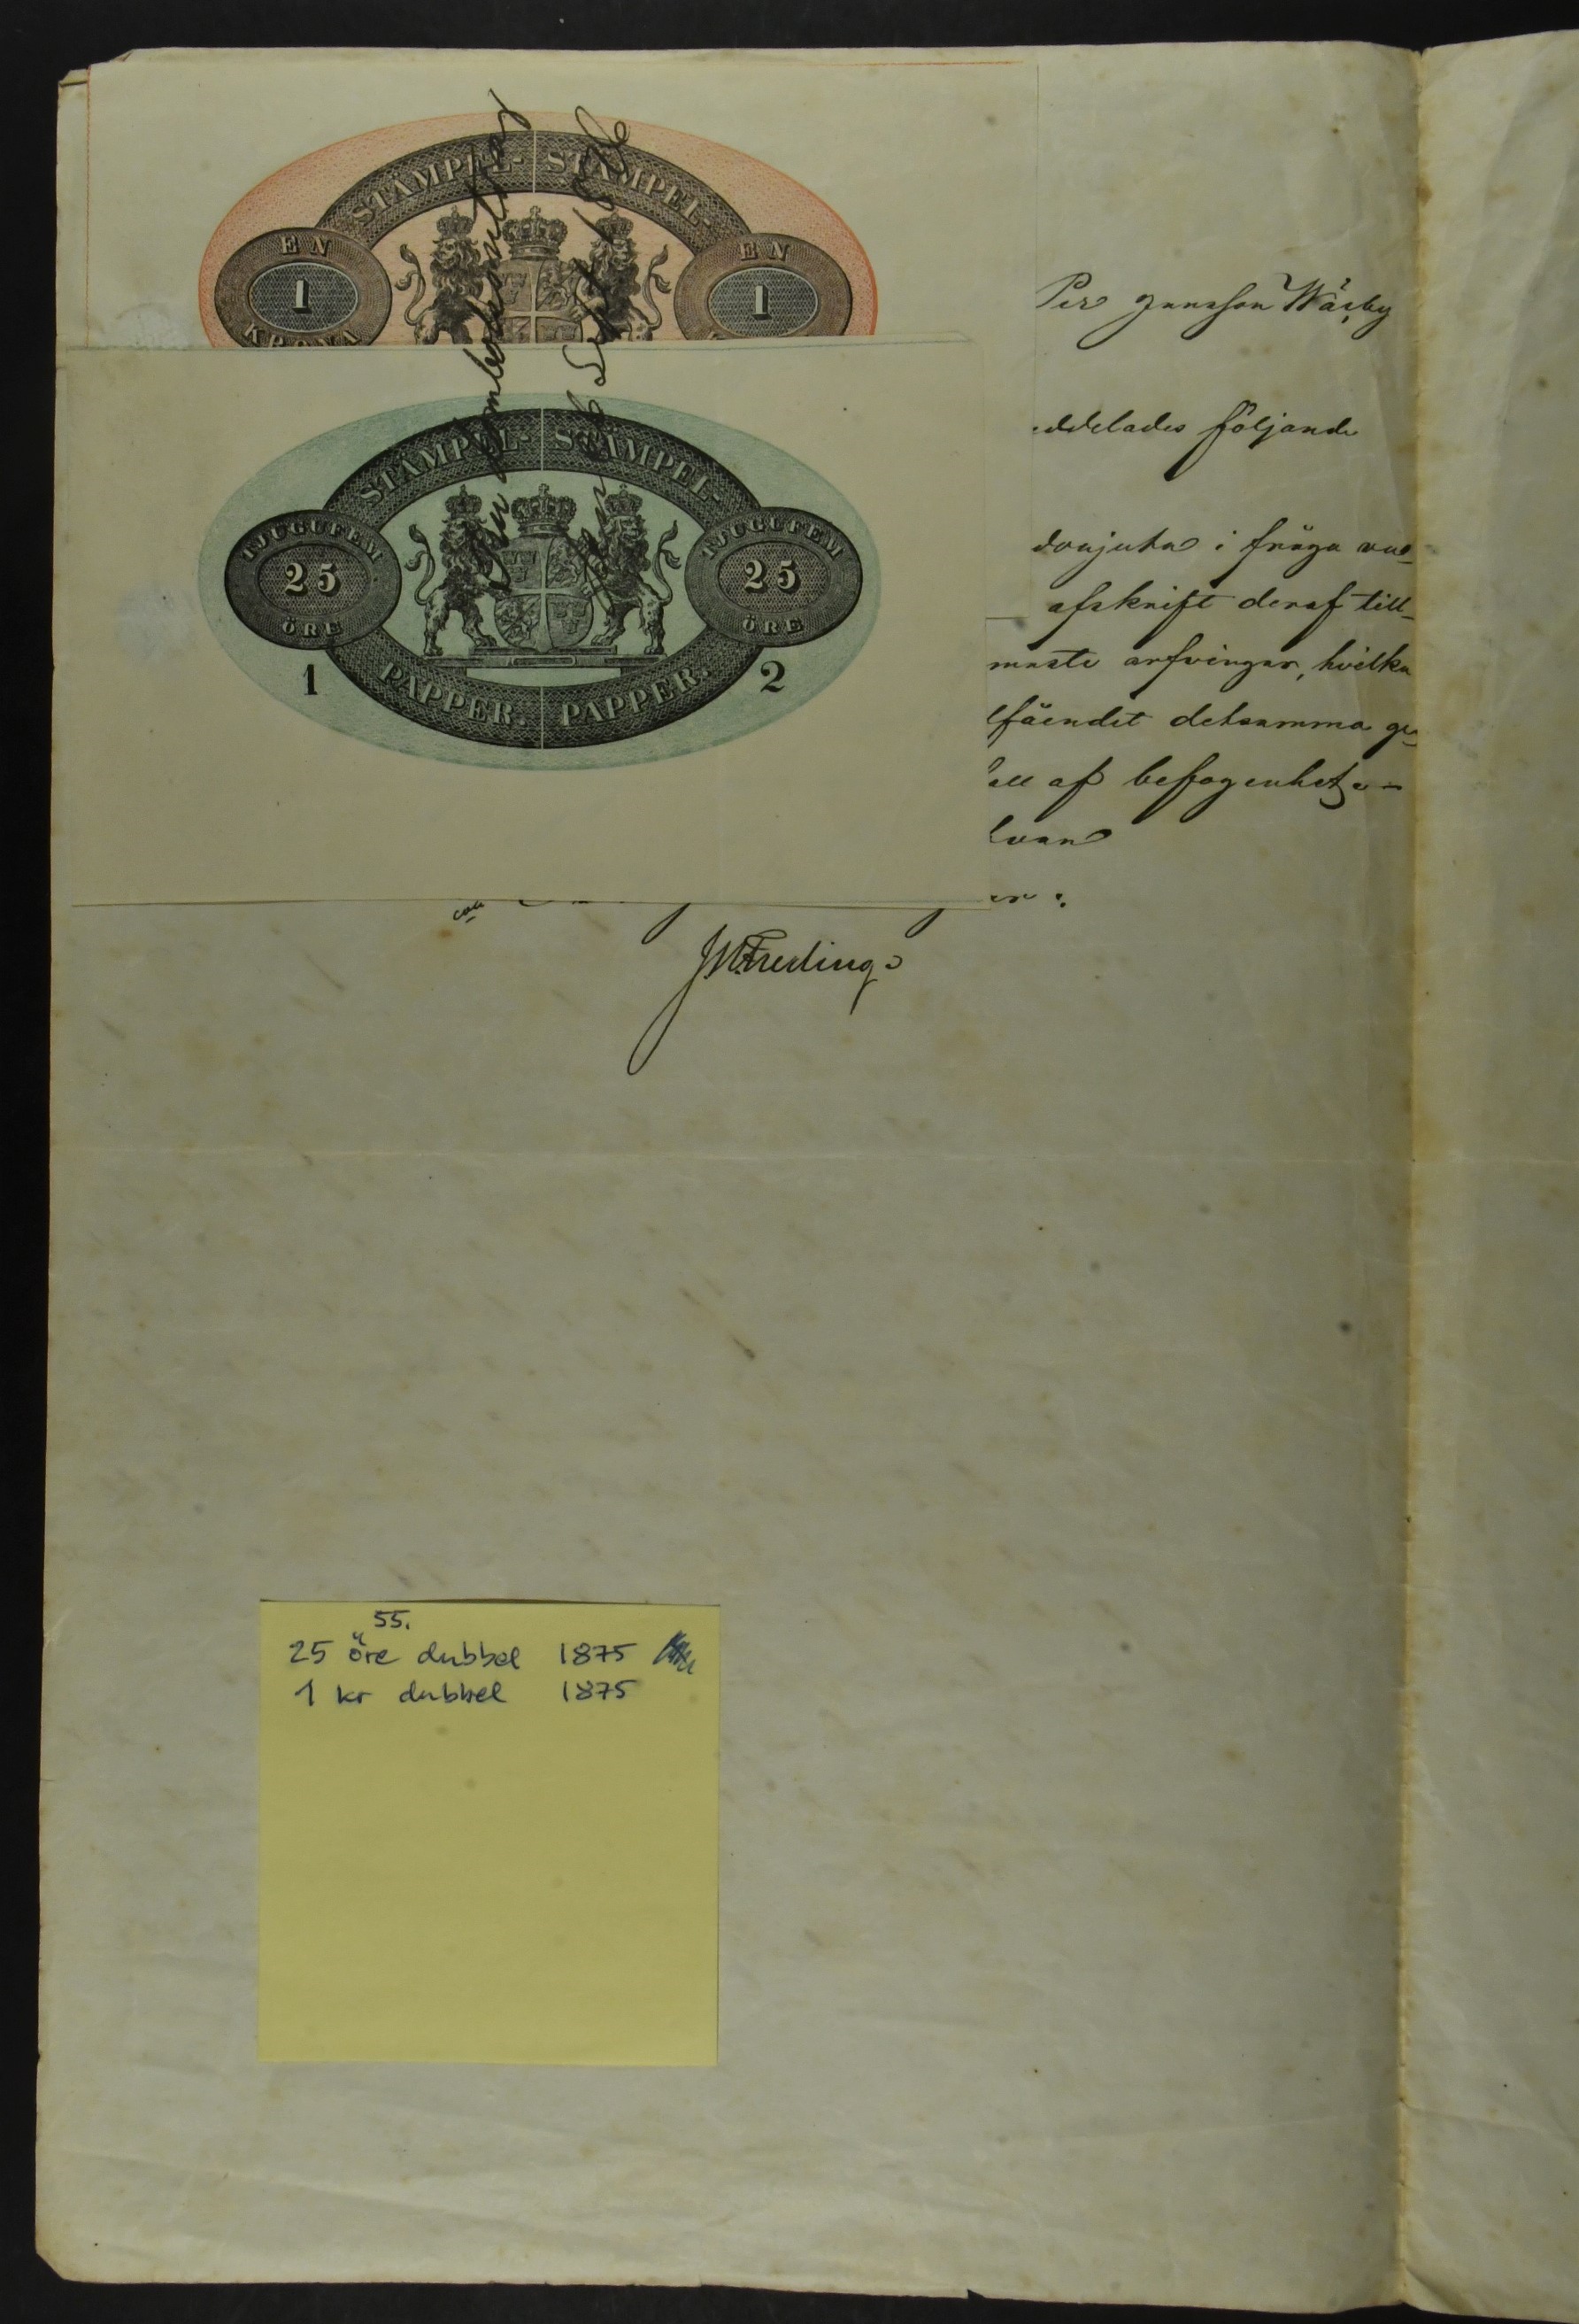 STÄMPEL- STÄMPEL-
EN 1 KRONA
EN 1
STÄMPEL- STÄMPEL-
TJUGUFEM 25 ÖRE
TJUGUFEM 25 ÖRE
1 2
PAPPER. PAPPER.
Per Jönsson Wärby
eddelades följande
i fråga
afskrift deraf till-
arfvingar, hvilka
detsamma ge-
af befogenhet
JWFreding
55.
25 öre dubbel 1875
1 kr dubbel 1875